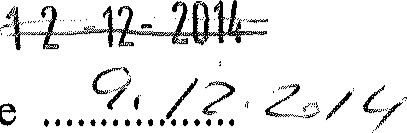 12-12-2014
e ................ 9.12.2014